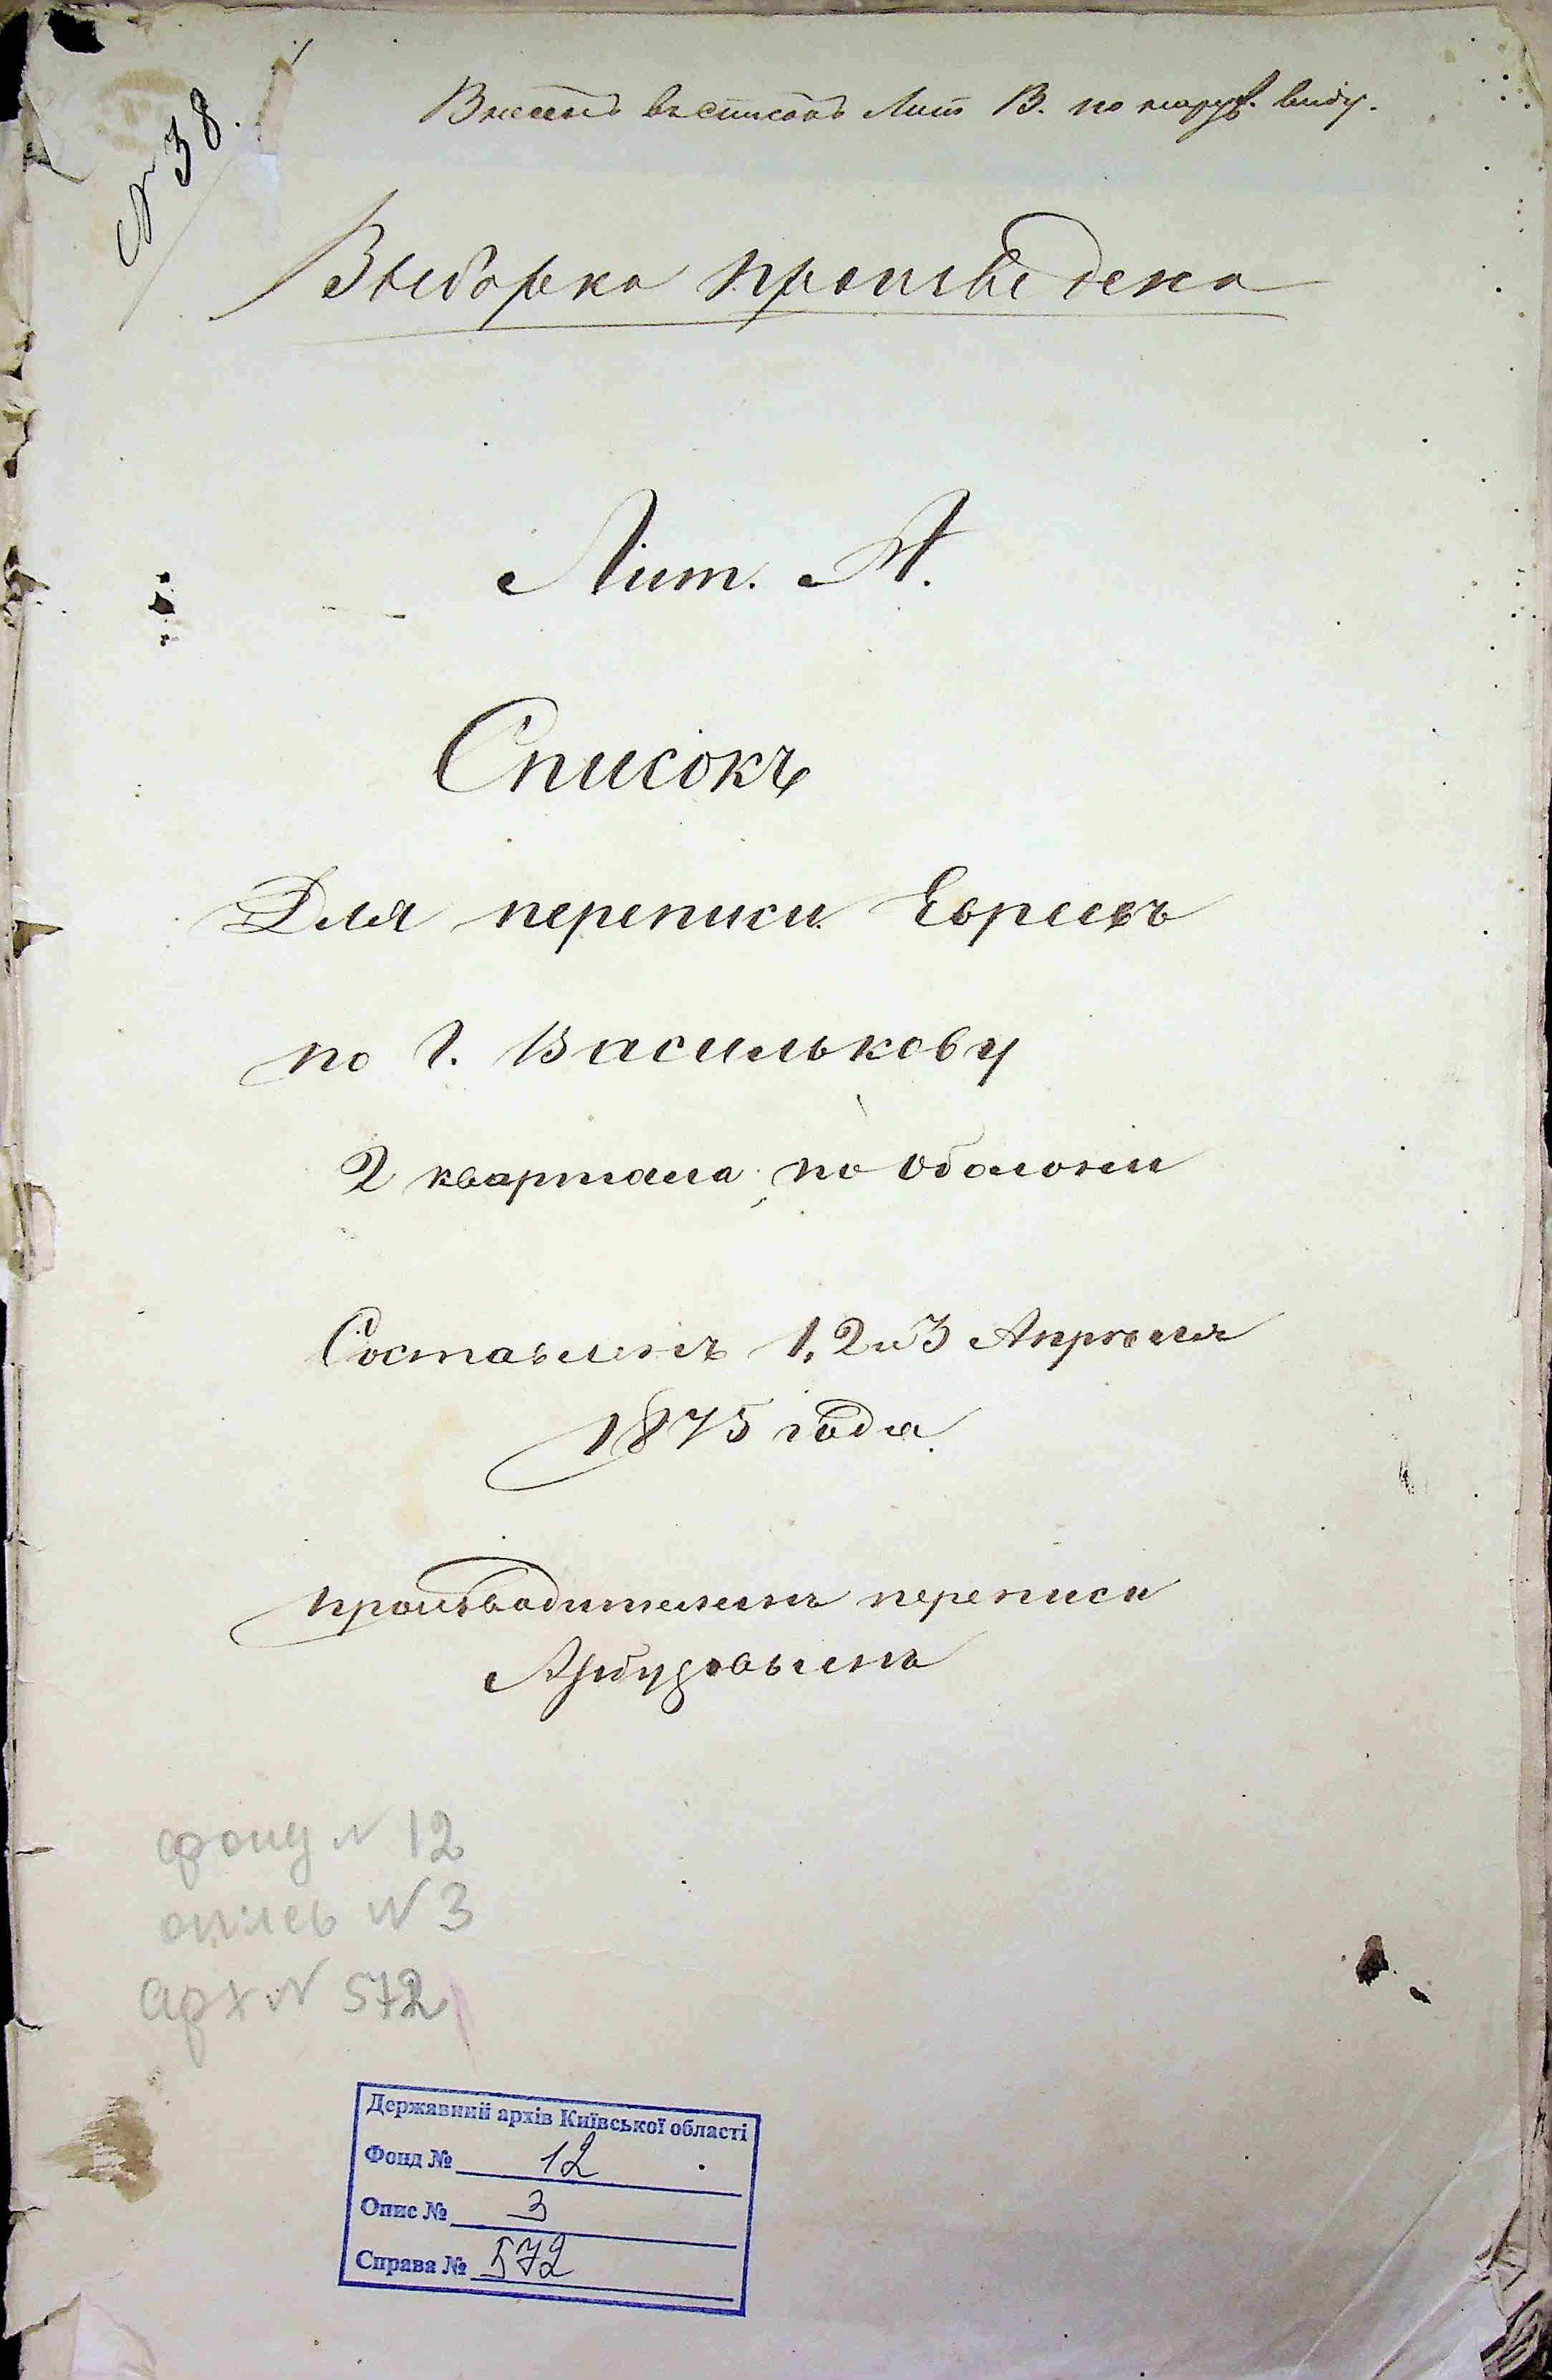 № 38.
Внесенъ въ списокъ Лит В. по наруж. виду.
Выборка произведена
Лит. А.
Списокъ
Для переписи Евреевъ
по г. Василькову
2 квартала по Оболони
Составленъ 1, 2 и 3 Апрѣля
1875 года.
производителемъ переписи
фонд N 12
опись N 3
арх N 572
Державний архів Київської області
Фонд № 12
Опис № 3
Справа № 572